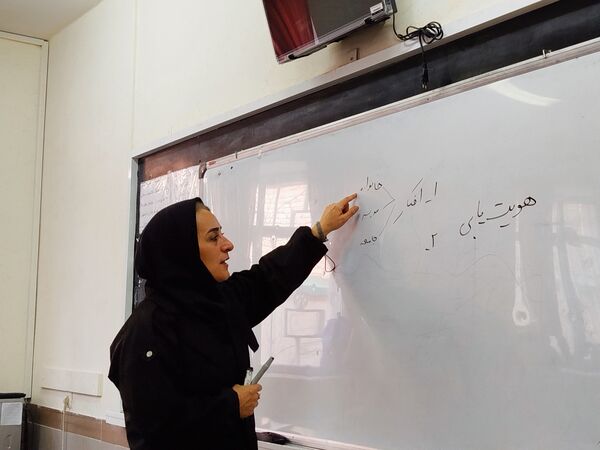 هویت یابی
۱. افکار
خانواده
مدرسه
جامعه
۲.